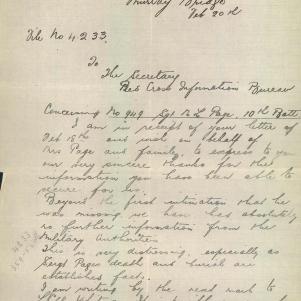 Murray Bridge
Feb 20th
File No 4233.
To
The Secretary
Red Cross Information Bureau
Concerning No 949 Sgt R L Page, 10th Batt.
I am in receipt of your letter of
Feb 18th and wish on behalf of
Mrs Page and family to express to you
our very sincere thanks for the
information you have been able to
secure for us.
Beyond the first intimation that he
was missing we have had absolutely
no further information from the
Military Authorities
This is very distressing, especially as
Sergt Pages death and burial are
established facts.
I am writing by the next mail to